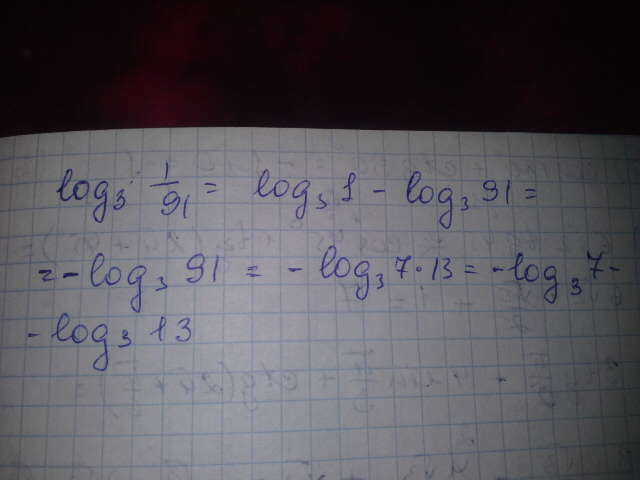 log₃ 1/91 = log₃ 1 - log₃ 91 =
= - log₃ 91 = - log₃ 7·13 = - log₃ 7 -
- log₃ 13